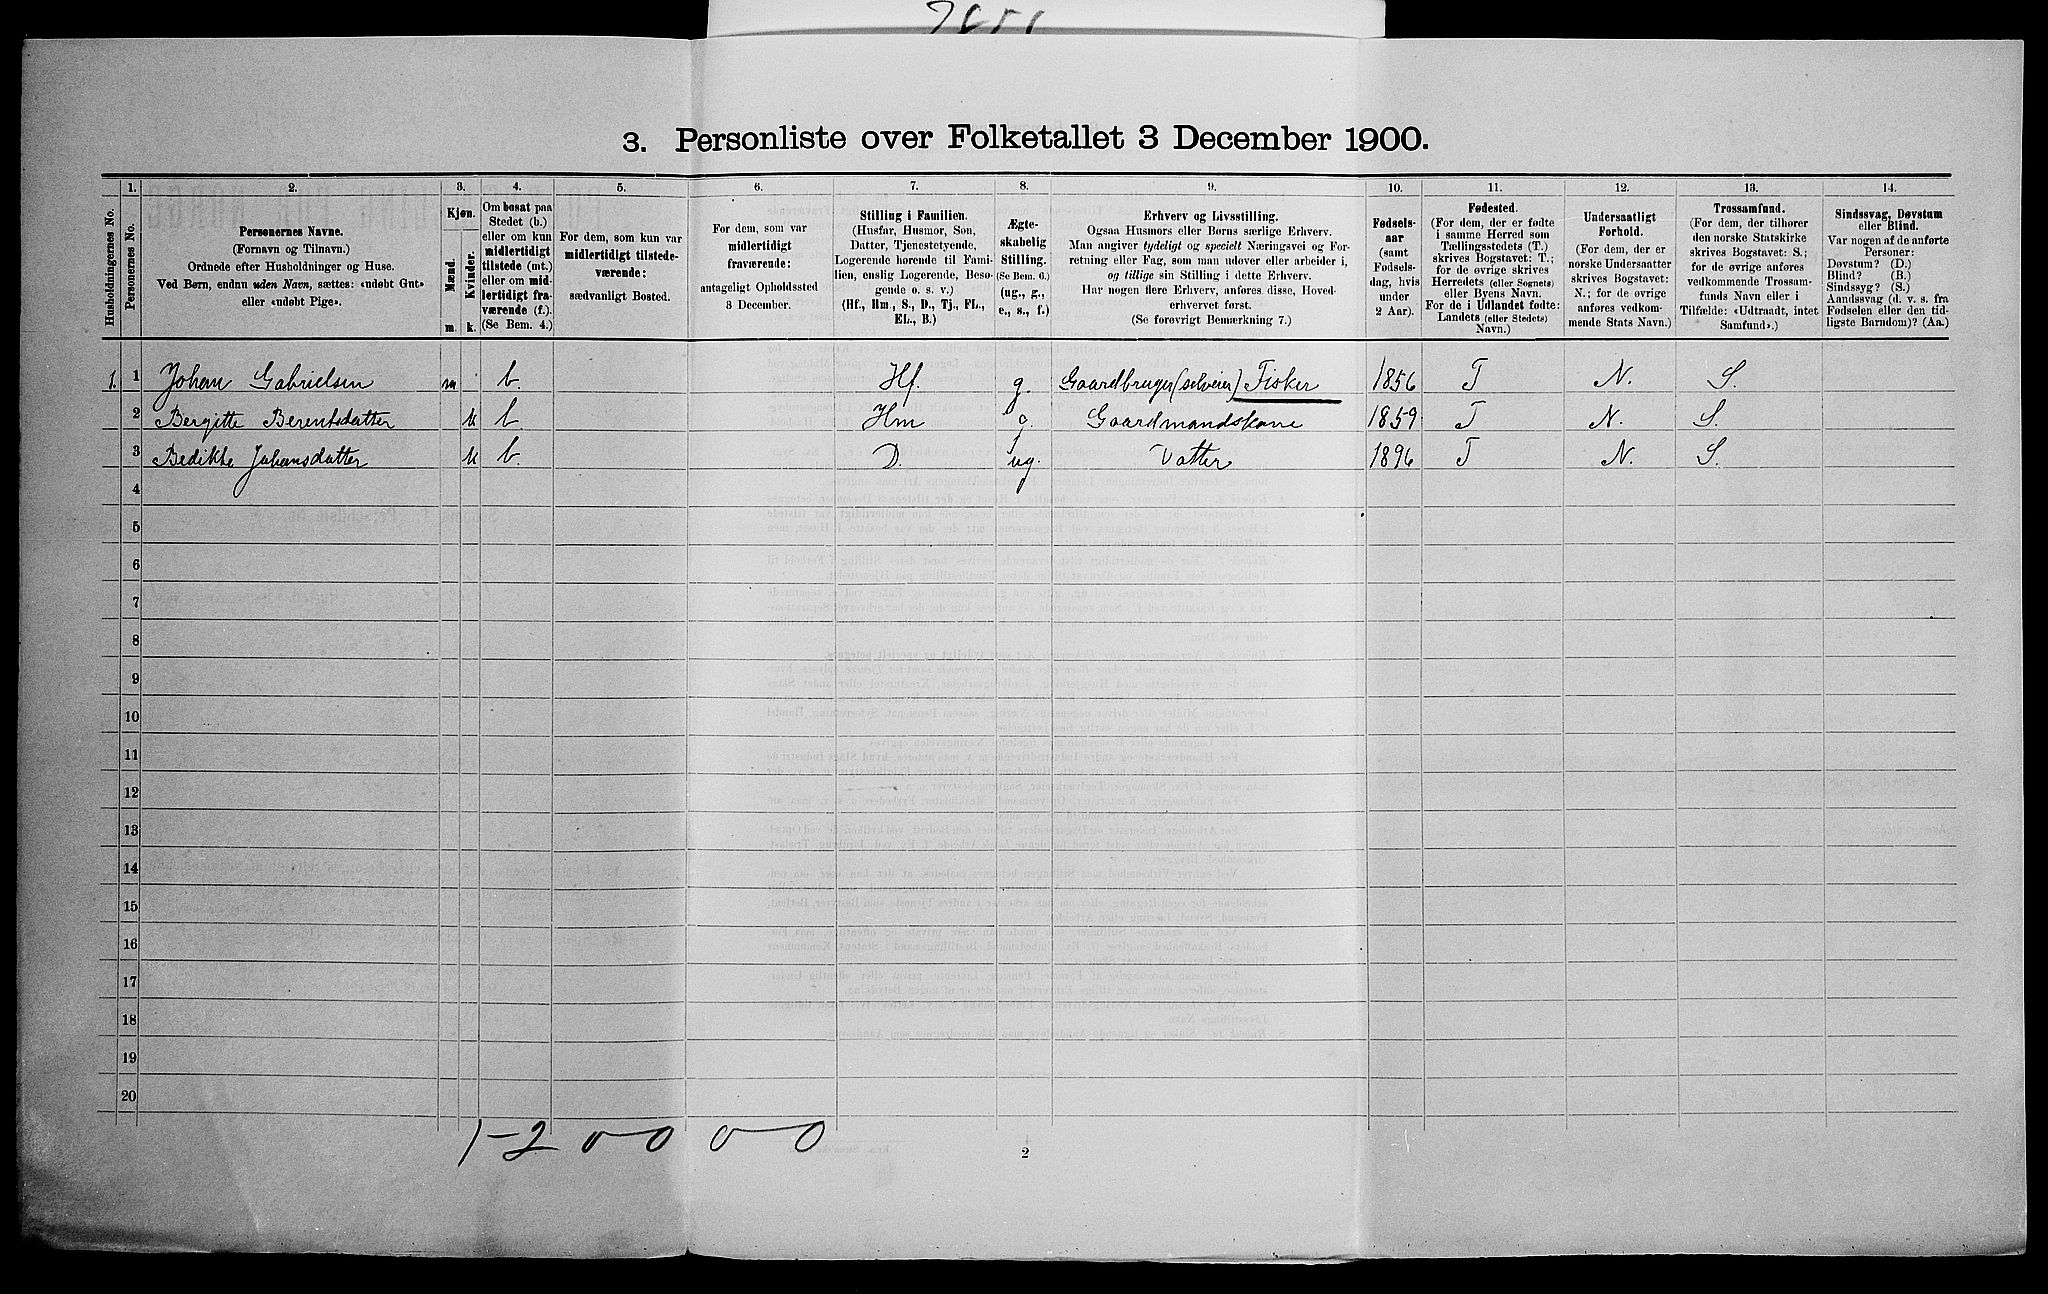 3. Personliste over Folketallet 3 December 1900.
Husholdningernes No.
1.
Personernes No.
2.
Personernes Navne.
(Fornavn og Tilnavn.)
Ordnede efter Husholdninger og Huse.
Ved Børn, endnu uden Navn, sættes: «udøbt Gut»
eller «udøbt Pige».
3.
Kjøn.
Mænd.
Kvinder.
m.
k.
4.
Om bosat paa
Stedet (b.)
eller om kun
midlertidigt
tilstede (mt.)
eller om mid-
lertidigt fra-
værende (f.).
(Se Bem. 4.)
5.
For dem, som kun var
midlertidigt tilstede-
værende:
sædvanligt Bosted.
6.
For dem, som var
midlertidigt
fraværende:
antageligt Opholdssted
3 December.
7.
Stilling i Familien.
(Husfar, Husmor, Søn,
Datter, Tjenestetyende,
Logerende hørende til Fami-
lien, enslig Logerende, Besø-
gende o. s. v.)
(Hf., Hm., S., D., Tj., FL.,
EL., B.)
8.
Ægte-
skabelig
Stilling.
(Se Bem. 6.)
(ug., g.,
e., s., f.)
9.
Erhverv og Livsstilling.
Ogsaa Husmors eller Børns særlige Erhverv.
Man angiver tydeligt og specielt Næringsvei og For-
retning eller Fag, som man udover eller arbeider i,
og tillige sin Stilling i dette Erhverv.
Har nogen flere Erhverv, anføres disse, Hoved-
erhvervet først.
(Se forøvrigt Bemærkning 7.)
10.
Fødsels-
aar
(samt
Fødsels-
dag, hvis
under
2 Aar).
11.
Fødested.
(For dem, der er fødte
i samme Herred som
Tællingsstedets (T.)
skrives Bogstavet: T.;
for de øvrige skrives
Herredets (eller Sognets)
eller Byens Navn.
For de i Udlandet fødte:
Landets (eller Stedets)
Navn.)
12.
Undersaatligt
Forhold.
(For dem, der er
norske Undersaatter
skrives Bogstavet:
N.; for de øvrige
anføres vedkom-
mende Stats Navn.)
13.
Trossamfund.
(For dem, der tilhører
den norske Statskirke
skrives Bogstavet: S.;
for de øvrige anføres
vedkommende Trossam-
funds Navn eller i
Tilfælde: «Udtraadt, intet
Samfund».)
14.
Sindssvag, Døvstum
eller Blind.
Var nogen af de anførte
Personer:
Døvstum? (D.)
Blind? (B.)
Sindssyg? (S.)
Aandssvag (d. v. s. fra
Fødselen eller den tid-
ligste Barndom)? (Aa.)
1. 1 Johan Gabrielsen m b. Hf. g. Gaardbruger (selveier) Fisker 1856 T N. S.
2 Bergitte Berentsdatter k b. Hm g. Gaardmandskone 1859 T N. S.
3 Bedikte Johansdatter k b. D. ug. Datter 1896 T N. S.
4
5
6
7
8
9
10
11
12
13
14
15
16
17
18
19
20
1-2 0 0 0 0
2